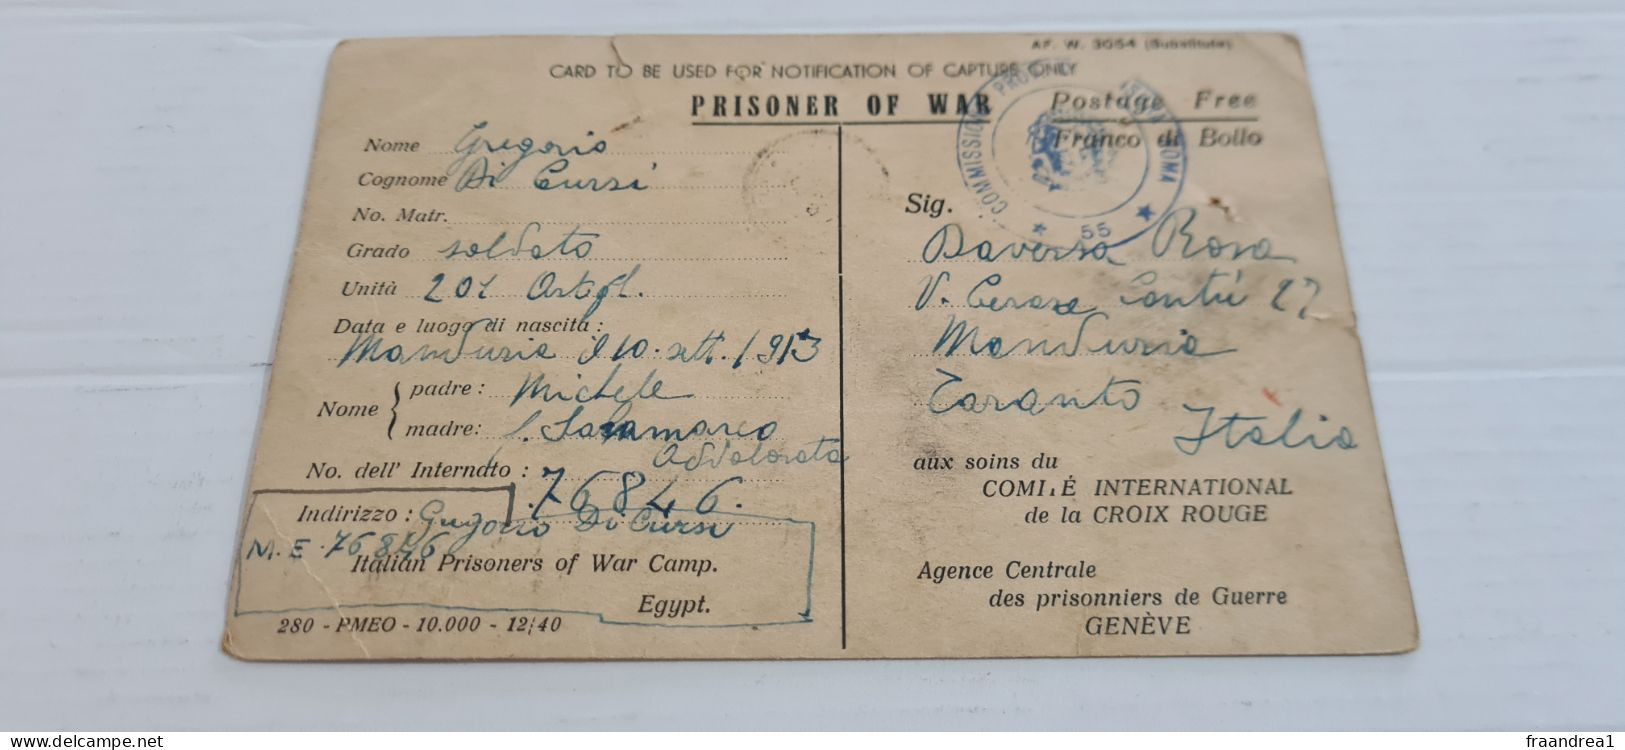 AF. W. 3054 (Substitute)
CARD TO BE USED FOR NOTIFICATION OF CAPTURE ONLY
PRISONER OF WAR
Postage Free
Franco di Bollo
COMMISSIONE ROMA
55
Nome Gregorio
Cognome Di Cursi
No. Matr.
Grado soldato
Unità 201 Artigl.
Data e luogo di nascita :
Manduria il 10. sett. 1913
Nome
padre : Michele
madre: Addolorata
No. dell' Internato : 76846.
Indirizzo : Gregorio Di Cursi
M. E. 76846
Italian Prisoners of War Camp.
Egypt.
280 - PMEO - 10.000 - 12/40
Sig.
Daversa Rosa
V. Cesare Cantù 27
Manduria
Taranto
Italia
aux soins du
COMITÉ INTERNATIONAL
de la CROIX ROUGE
Agence Centrale
des prisonniers de Guerre
GENÈVE
delcampe.net
fraandrea1